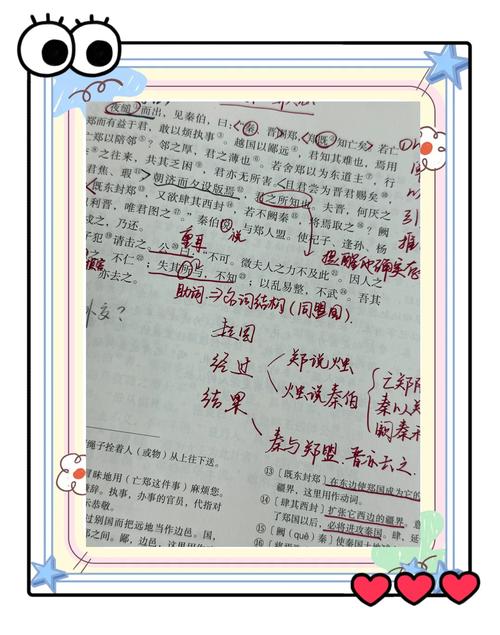 夜缒②而出，见秦伯，曰：“秦、晋围郑，郑既知亡矣。若亡
郑而有益于君，敢以烦执事。越国以鄙远，君知其难也，焉用
亡郑以陪邻？邻之厚，君之薄也。若舍郑以为东道主，行
之往来，共其乏困，君亦无所害。且君尝为晋君赐矣，
君焦、瑕，朝济而夕设版焉，君之所知也。夫晋，何厌之
既东封郑，又欲肆其西封，若不阙秦，将焉取之？阙
以利晋，唯君图之。”秦伯说，与郑人盟。使杞子、逢孙、杨
戍之，乃还。
子犯请击之，公曰：“不可。微夫人之力不及此。因人之
之，不仁；失其所与，不知；以乱易整，不武。吾其
亦去之。
重耳
悦
提醒
助词→名词结构（同盟国）.
外交？
起因
经过
郑说烛
烛说秦伯
亡郑
秦以
阙秦
结果
秦与郑盟.晋亦去之.
引
推
绳子拴着人（或物）从上往下送。
冒昧地用（亡郑这件事）麻烦您。
谦辞。执事，办事的官员，代指对
示恭敬。
过别国而把远地当作边邑。国，
郑之间。鄙，边邑，这里用作
⑬〔既东封郑〕在东边使郑国成为它的
疆界，这里用作动词。
⑭〔肆其西封〕扩张它西边的疆界。意
了郑国以后，必将进攻秦国。肆，延
⑮〔阙（quē）秦〕使秦国土地
⑯〔将焉